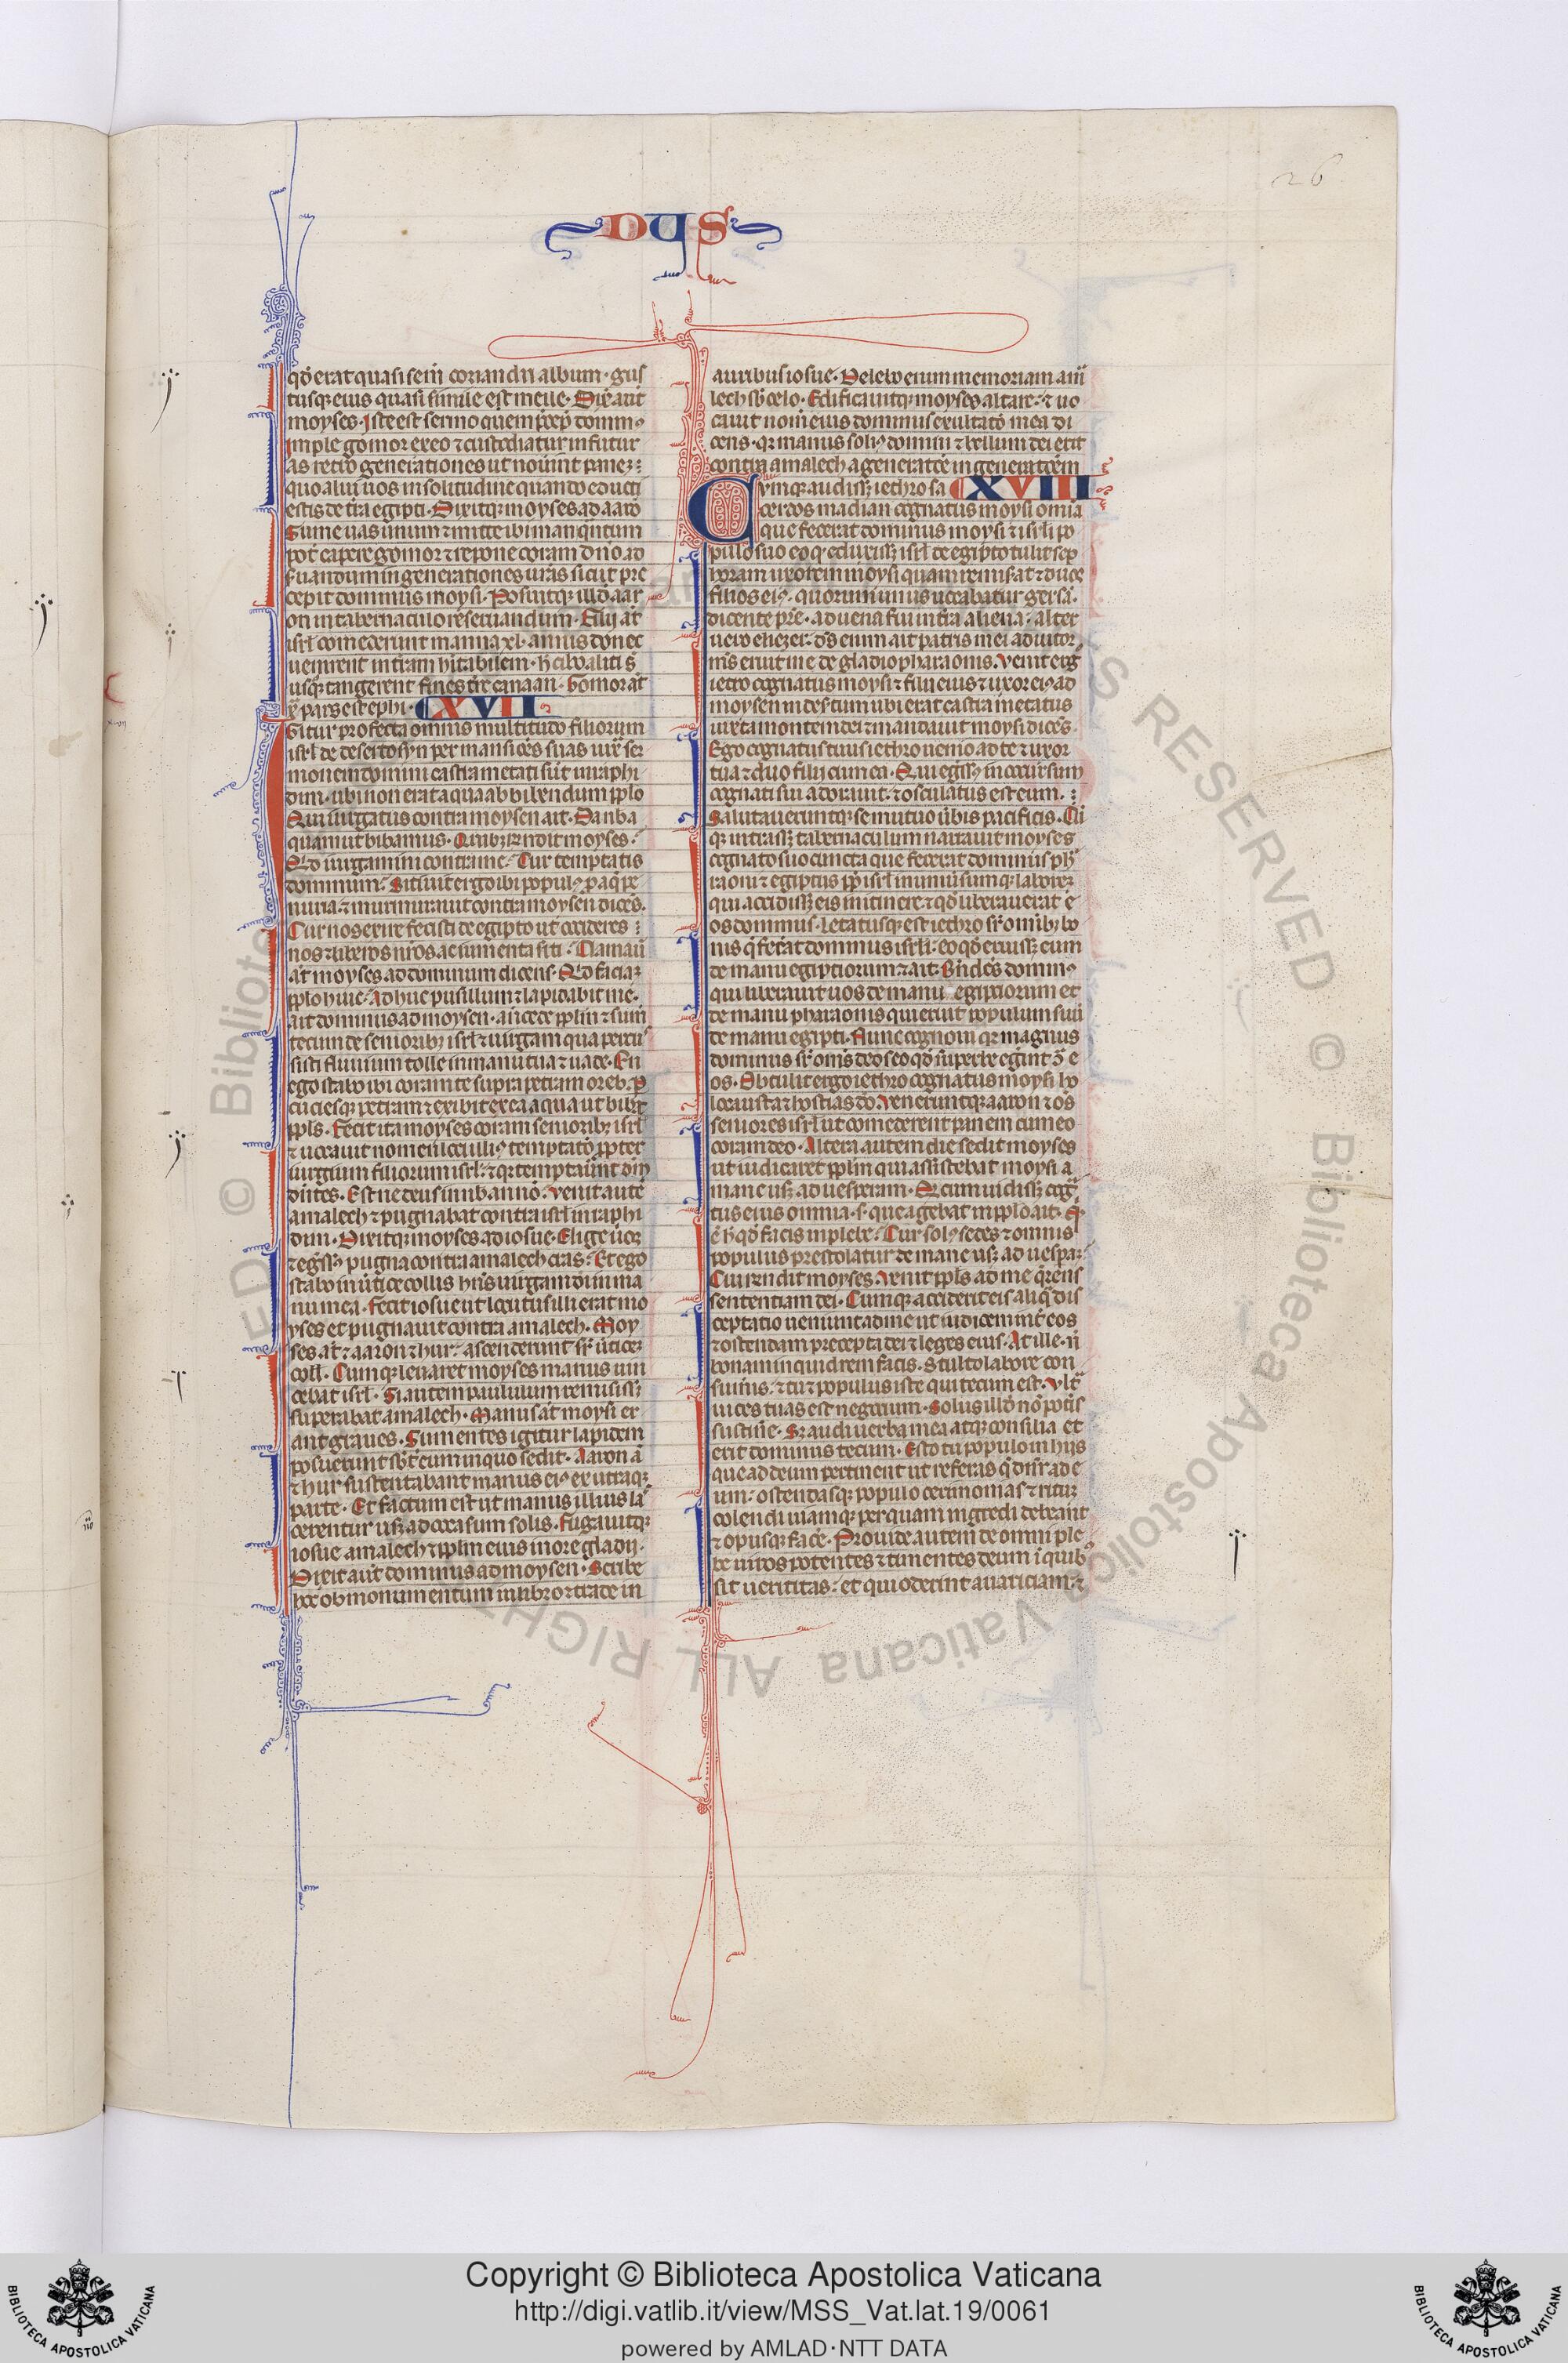 DUS
26
qđ erat quasi semī coriandri album· gus
tusq; eius quasi simile est melle· Dix̄ aut̄
moyses· Iste est sermo quem p̄cep̄ domin⁹
imple gomor ex eo ⁊ custodiatur in futur
as retro generationes ut nouint panez :
quo alui uos in solitudine quando educti
estis de tr̄a egipti· Dixitq; moyses ad aarō
Sume uas unum ⁊ mitte ibi man q̄ntum
pot̄ capere gomor ⁊ repone coram dn̄o ad
seruandum in generationes ur̄as sicut pre
cepit dominus moysi· Posuitq; illđ aar
on in tabernaculo reseruandum· Filij at̄
isrl̄ comederunt manna xl· annis donec
uenirent in terram hītabilem· h̄ cibo aliti s̄
usq; tangerent fines tr̄e canaan· Gomor at̄
x̄ pars est ephi· XVII
Gitur profecta omnis multitudo filiorum
isrl̄ de deserto syn per mansiōēs suas iux̄ ser
monem domini castra metati sūt in raphi
dim· ubi non erat aqua ab bibendum pplo
Qui iurgatus contra moysen ait· Da nb̄ a
quam ut bibamus· Quib; r̄ndit moyses·
Qđ iurgamini contra me· Cur temptatis
dominum· Sitiuit ergo ibi popul⁹ p̄ aq̄ pe
nuria ⁊ murmurauit contra moysen dicēs·
Cur nos exire fecisti de egipto ut occideres :
nos ⁊ liberos nr̄os ac iumenta siti· Clamaū
at̄ moyses ad dominum dicens· Qđ faciaz
pplo huic· Adhuc pusillum ⁊ lapidabit me·
ait dominus ad moysen· an̄cede pplm ⁊ sum
tecum de seniorib; isrl̄ ⁊ uirgam qua percu
sisti fluuium tolle in manu tua ⁊ uade· En
ego stabo ibi coram te supra petram oreb· p
cuciesq; petram ⁊ exibit ex ea aqua ut bibat
ppls· Fecit ita moyses coram seniorib; isrl̄
⁊ uocauit nomen loci illi⁹ temptatō p̄pter
iurgium filiorum isrl̄· ⁊ q; temptauīnt dn̄m
dn̄tes· Est ne deus in nb̄ an nō· Venit autē
amalech ⁊ pugnabat contra isrl̄ in raphi
dim· Dixitq; moyses ad iosue· Elige uiroz
⁊ egss⁹ pugna contra amalech cras· Et ego
stabo in ūtice collis hn̄s uirgam dei in ma
nu mea· Fecit iosue ut locutus illi erat mo
yses et pugnauit contra amalech· Moy
ses at̄ ⁊ aaron ⁊ hur· ascenderunt sr̄ ūticez
coll· Cumq; leuaret moyses manus uin
cebat isrl̄· Si autem paululum remisiss;
superabat amalech· Manus at̄ moysi er
ant graues· Sumentes igitur lapidem
posuerunt sbt̄ eum in quo sedit· Aaron ā
⁊ hur sustentabant manus ei⁹ ex utraq;
parte· Et factum est ut manus illius la
cerentur usq; ad occasum solis· Fugauitq;
iosue amalech ⁊ pplm eius in ore gladij·
Dixit aut̄ dominus ad moysen· Scribe
hoc ob monumentum in libro ⁊ trade in
auribus iosue· Delebo enim memoriam am̄
lech sb̄ celo· Edificauitq; moyses altare· ⁊ uo
cauit nom̄ eius dominus exultatō mea di
cens· q; manus soli⁹ domini ⁊ bellum dei erit
contra amalech a generatōe in generatōem
Cumq; audiss; iethro sa XVIII
cerdos madian cognatus moysi omīa
que fecerat dominus moysi ⁊ isrl̄i po
pulo suo eo q eduxiss; isrl̄ de egipto tulit sep
horam uxorem moysi quam remisat ⁊ duos
filios ei⁹· quorum unus uocabatur gersā·
dicente pr̄e· aduena fui in tr̄a aliena· alter
uero eliezer· đs enim ait patris mei adiutor
m̄s eruit me de gladio pharaonis· venit erg
ietro cognatus moysi ⁊ filij eius ⁊ uxor ei⁹ ad
moysen in desertum ubi erat castra metatus
iuxta montem dei ⁊ mandauit moysi dicēs·
Ego cognatus tuus iethro uenio ad te ⁊ uxor
tua ⁊ duo filij cum ea· Qui egss⁹ in occursum
cognati sui adorauit· ⁊ osculatus est eum· :
Salutaueruntq; se mutuo ūbis pacificis· Cū
q; intrass; tabernaculum narrauit moyses
cognato suo cuncta que fecerat dominus ph̄
raoni ⁊ egiptus pp̄ isrl̄ inuniūsumq; laborez
qui accidiss; eis in itinere ⁊ qđ liberauerat e
os dominus· letatusq; est iethro sr̄ omīb; bo
nis q̄ fec̄at dominus isrl̄i· eo qđ eruiss; eum
de manu egiptiorum ⁊ ait· Bn̄dcs̄ domin⁹
qui liberauit uos de manu egiptiorum et
de manu pharaonis qui eruit populum suū
de manu egipti· Nunc cognoui q; magnus
dominus sr̄ om̄s deos eo qđ sup̄erbe egint ō e
os· Obtulit ergo iethro cognatus moysi ho
locausta ⁊ hostias do· Veneruntq; aaron ⁊ os̄
seniores isrl̄ ut comederent panem cum eo
coram deo· Altera autem die sedit moyses
ut iudicaret pplm qui assistebat moysi a
mane us; ad uesperam· Qđ cum uidiss; cog
tus eius omnia· s· que agebat in pplo ait· q̄
ē h̄ qđ facis in plebe· Cur sol⁹ sedes ⁊ omnis
populus prestolatur de mane us; ad uesparz
Cui r̄ndit moyses· Venit ppls ad me q̄rens
sententiam dei· Cumq; acciderit eis aliq̄ dis
ceptatio ueniunt ad me ut iudicem int̄ eos
⁊ ostendam precepta dei ⁊ leges eius· At ille· n̄
bonam inquid rem facis· Stulto labore con
sumis· ⁊ tu ⁊ populus iste qui tecum est· Vlt̄
uires tuas est negocium· Solus illđ nō potis
sustin̄e· Sz audi uerba mea atq; consilia et
erit dominus tecum· Esto tu populo in hijs
que ad deum pertinent ut referas q̄ dn̄r ad e
um· ostendasq; populo cerimonias ⁊ rituz
colendi uiamq; per quam ingredi debeant
⁊ opusq; facē· Prouide autem de omni ple
be uiros potentes ⁊ timentes deum ī quib⁹
sit uerititas· et qui oderint auariciam· ⁊
Copyright © Biblioteca Apostolica Vaticana
http://digi.vatlib.it/view/MSS_Vat.lat.19/0061
powered by AMLAD·NTT DATA
BIBLIOTECA APOSTOLICA VATICANA
BIBLIOTECA APOSTOLICA VATICANA